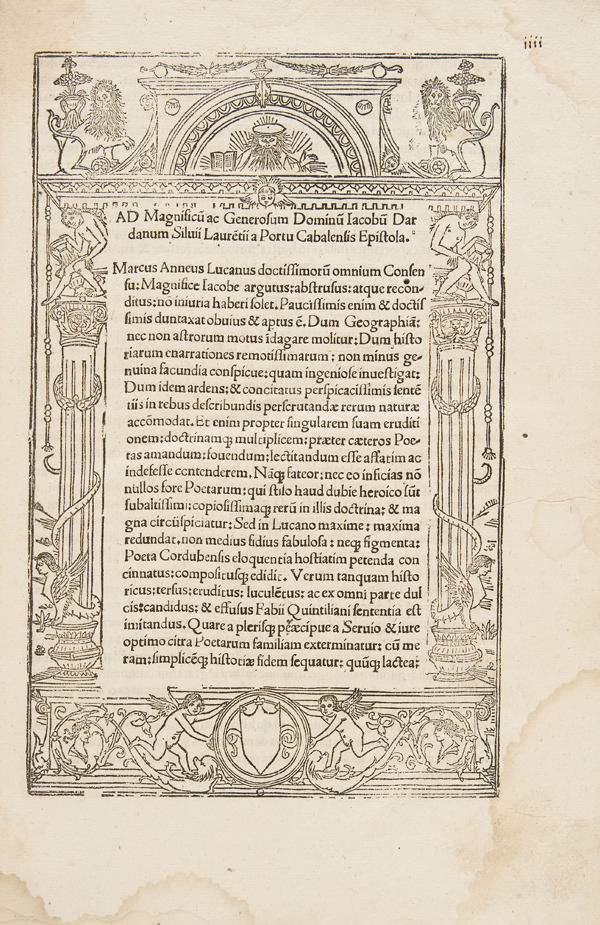 iiii
AD Magnificū ac Generosum Dominū Iacobū Dar
danum Siluii Laurētii a Portu Cabalensis Epistola.
Marcus Anneus Lucanus doctissimorū omnium Consen
su: Magnifice Iacobe argutus: abstrusus: atque recon-
ditus: no iniuria haberi solet. Paucissimis enim & doctis
simis duntaxat obuius & aptus ē. Dum Geographiā:
nec non astrorum motus īdagare molitur: Dum histo
riarum enarrationes remotissimarum: non minus ge-
nuina facundia conspicue: quam ingeniose inuestigat:
Dum idem ardens: & concitatus perspicacissimis sentē
tiis in rebus describundis perscrutandæ rerum naturæ
accōmodat. Et enim propter singularem suam eruditi
onem: doctrinamq; multiplicem: præter cæteros Poe-
tas amandum: fouendum: lectitandum esse affatim ac
indefesse contenderem. Nāq; fateor: nec eo inficias nō
nullos fore Poetarum: qui stilo haud dubie heroico sūt
subaltissimi: copiosissimaq; rerū in illis doctrina: & ma
gna circūspiciatur: Sed in Lucano maxime: maxima
redundat. non medius fidius fabulosa: neq; figmenta:
Poeta Cordubensis eloquentia hostiatim petenda con
cinnatus: compositusq; edidit. Verum tanquam histo
ricus: tersus: eruditus: luculētus: ac ex omni parte dul
cis: candidus: & effusus Fabii Quintiliani sententia est
imitandus. Quare a plerisq; præcipue a Seruio & iure
optimo citra Poetarum familiam exterminatur: cū me
ram: simplicēq; historiæ fidem sequatur: quūq; lactea: